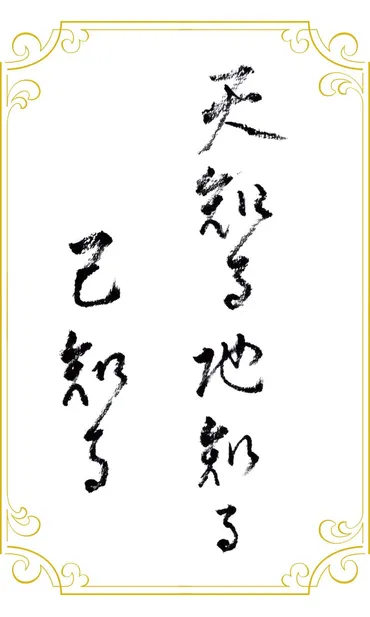 天知る地知る
己知る